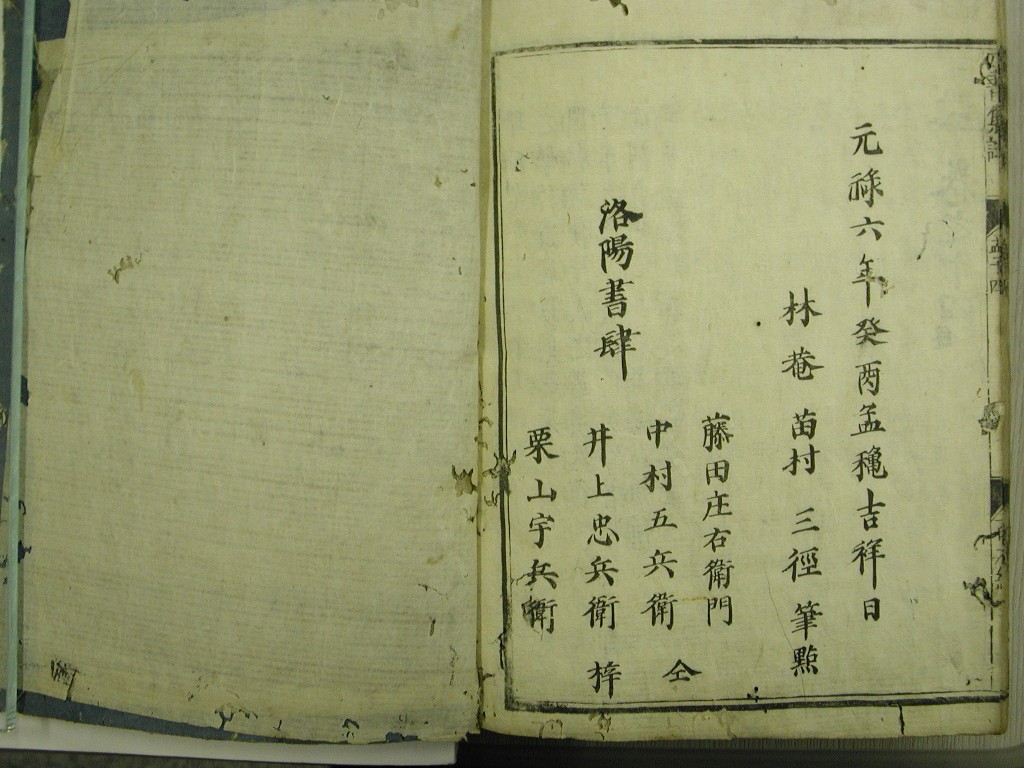 元祿六年癸酉孟穐吉祥日
林菴 苗村 三徑 筆點
洛陽書肆
藤田庄右衛門
中村五兵衛 仝
井上忠兵衛 梓
栗山宇兵衛